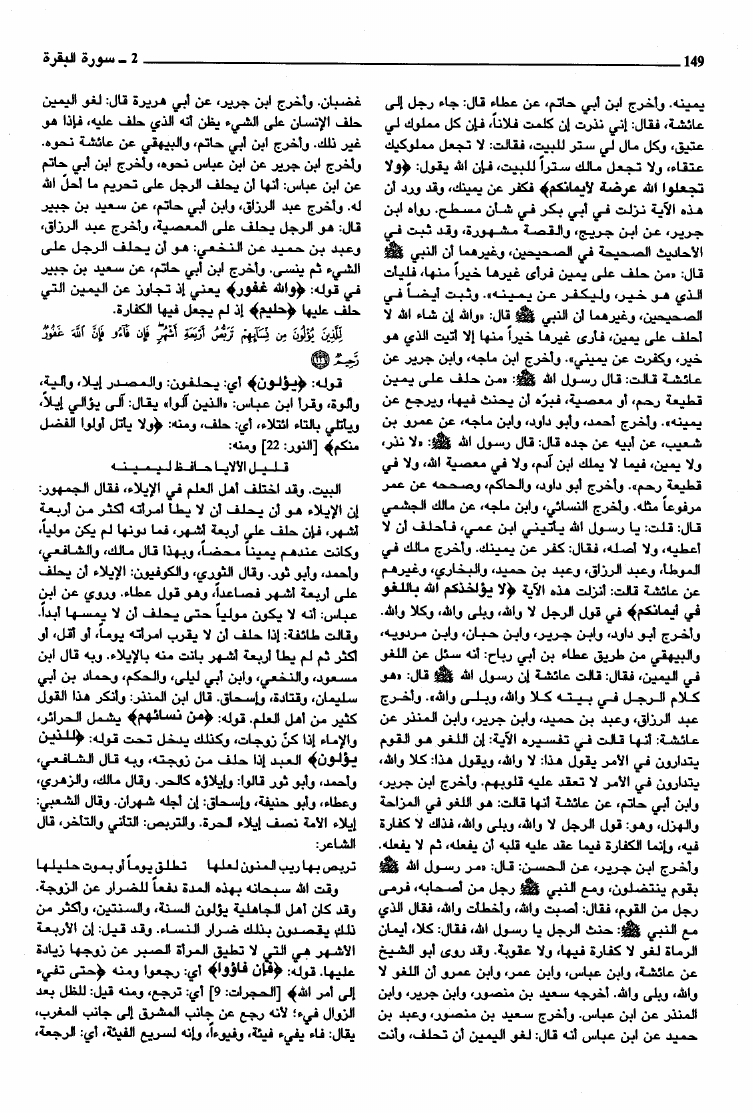 149 2 ـ سورة البقرة
يمينه. وأخرج ابن أبي حاتم، عن عطاء قال: جاء رجل إلى
عائشة، فقال: إني نذرت إن كلمت فلاناً، فإن كل مملوك لي
عتيق، وكل مال لي ستر للبيت، فقالت: لا تجعل مملوكيك
عتقاء، ولا تجعل مالك ستراً للبيت، فإن الله يقول: ﴿ولا
تجعلوا الله عرضة لأيمانكم﴾ فكفر عن يمينك، وقد ورد أن
هذه الآية نزلت في أبي بكر في شأن مسطح. رواه ابن
جرير، عن ابن جريج، والقصة مشهورة، وقد ثبت في
الأحاديث الصحيحة في الصحيحين، وغيرهما أن النبي ﷺ
قال: «من حلف على يمين فرأى غيرها خيراً منها، فليأت
الذي هو خير، وليكفر عن يمينه». وثبت أيضاً في
الصحيحين، وغيرهما أن النبي ﷺ قال: «والله إن شاء الله لا
أحلف على يمين، فأرى غيرها خيراً منها إلا أتيت الذي هو
خير، وكفرت عن يميني». وأخرج ابن ماجه، وابن جرير عن
عائشة قالت: قال رسول الله ﷺ: «من حلف على يمين
قطيعة رحم، أو معصية، فبرّه أن يحنث فيها، ويرجع عن
يمينه». وأخرج أحمد، وأبو داود، وابن ماجه، عن عمرو بن
شعيب، عن أبيه عن جده قال: قال رسول الله ﷺ: «لا نذر،
ولا يمين، فيما لا يملك ابن آدم، ولا في معصية الله، ولا في
قطيعة رحم». وأخرج أبو داود، والحاكم، وصححه عن عمر
مرفوعاً مثله. وأخرج النسائي، وابن ماجه، عن مالك الجشمي
قال: قلت: يا رسول الله يأتيني ابن عمي، فأحلف أن لا
أعطيه، ولا أصله، فقال: كفر عن يمينك. وأخرج مالك في
الموطأ، وعبد الرزاق، وعبد بن حميد، والبخاري، وغيرهم
عن عائشة قالت: أنزلت هذه الآية ﴿لا يؤاخذكم الله باللغو
في أيمانكم﴾ في قول الرجل لا والله، وبلى والله، وكلا والله.
وأخرج أبو داود، وابن جرير، وابن حبان، وابن مردويه،
والبيهقي من طريق عطاء بن أبي رباح: أنه سئل عن اللغو
في اليمين، فقال: قالت عائشة إن رسول الله ﷺ قال: «هو
كلام الرجل في بيته كلا والله، وبلى والله». وأخرج
عبد الرزاق، وعبد بن حميد، وابن جرير، وابن المنذر عن
عائشة: أنها قالت في تفسيره الآية: إن اللغو هو القوم
يتدارون في الأمر يقول هذا: لا والله، ويقول هذا: كلا والله،
يتدارون في الأمر لا تعقد عليه قلوبهم. وأخرج ابن جرير،
وابن أبي حاتم، عن عائشة أنها قالت: هو اللغو في المزاحة
والهزل، وهو: قول الرجل لا والله، وبلى والله، فذاك لا كفارة
فيه، وإنما الكفارة فيما عقد عليه قلبه أن يفعله، ثم لا يفعله.
وأخرج ابن جرير، عن الحسن: قال: «مر رسول الله ﷺ
بقوم ينتضلون، ومع النبي ﷺ رجل من أصحابه، فرمى
رجل من القوم، فقال: أصبت والله، وأخطأت والله، فقال الذي
مع النبي ﷺ: حنث الرجل يا رسول الله، فقال: كلا، أيمان
الرماة لغو لا كفارة فيها، ولا عقوبة. وقد روى أبو الشيخ
عن عائشة، وابن عباس، وابن عمر، وابن عمرو أن اللغو لا
والله، وبلى والله. أخرجه سعيد بن منصور، وابن جرير، وابن
المنذر عن ابن عباس. وأخرج سعيد بن منصور، وعبد بن
حميد عن ابن عباس أنه قال: لغو اليمين أن تحلف، وأنت
غضبان. وأخرج ابن جرير، عن أبي هريرة قال: لغو اليمين
حلف الإنسان على الشيء يظن أنه الذي حلف عليه، فإذا هو
غير ذلك. وأخرج ابن أبي حاتم، والبيهقي عن عائشة نحوه.
وأخرج ابن جرير عن ابن عباس نحوه، وأخرج ابن أبي حاتم
عن ابن عباس: أنها أن يحلف الرجل على تحريم ما أحلّ الله
له. وأخرج عبد الرزاق، وابن أبي حاتم، عن سعيد بن جبير
قال: هو الرجل يحلف على المعصية، وأخرج عبد الرزاق،
وعبد بن حميد عن النخعي: هو أن يحلف الرجل على
الشيء ثم ينسى. وأخرج ابن أبي حاتم، عن سعيد بن جبير
في قوله: ﴿والله غفور﴾ يعني إذ تجاوز عن اليمين التي
حلف عليها ﴿حليم﴾ إذ لم يجعل فيها الكفارة.
لِّلَّذِينَ يُؤْلُونَ مِن نِّسَآئِهِمْ تَرَبُّصُ أَرْبَعَةِ أَشْهُرٍ فَإِن فَآءُو فَإِنَّ ٱللَّهَ غَفُورٌ
رَّحِيمٌ ﴿٢٢٦﴾
قوله: ﴿يؤلون﴾ أي: يحلفون: والمصدر إيلاء، وألية،
وألوة، وقرأ ابن عباس: «الذين آلوا» يقال: آلى يؤالي إيلاً،
ويأتلي بالتاء ائتلاء، أي: حلف، ومنه: ﴿ولا يأتل أولوا الفضل
منكم﴾ [النور: 22] ومنه:
قليل الألايا حافظ ليمينه
البيت. وقد اختلف أهل العلم في الإيلاء، فقال الجمهور:
إن الإيلاء هو أن يحلف أن لا يطأ امرأته أكثر من أربعة
أشهر، فإن حلف على أربعة أشهر، فما دونها لم يكن مولياً،
وكانت عندهم يميناً محضاً، وبهذا قال مالك، والشافعي،
وأحمد، وأبو ثور. وقال الثوري، والكوفيون: الإيلاء أن يحلف
على أربعة أشهر فصاعداً، وهو قول عطاء. وروي عن ابن
عباس: أنه لا يكون مولياً حتى يحلف أن لا يمسها أبداً.
وقالت طائفة: إذا حلف أن لا يقرب امرأته يوماً، أو أقل، أو
أكثر ثم لم يطأ أربعة أشهر بانت منه بالإيلاء. وبه قال ابن
مسعود، والنخعي، وابن أبي ليلى، والحكم، وحماد بن أبي
سليمان، وقتادة، وإسحاق. قال ابن المنذر: وأنكر هذا القول
كثير من أهل العلم. قوله: ﴿من نسائهم﴾ يشمل الحرائر،
والإماء إذا كنّ زوجات، وكذلك يدخل تحت قوله: ﴿للذين
يؤلون﴾ العبد إذا حلف من زوجته، وبه قال الشافعي،
وأحمد، وأبو ثور قالوا: وإيلاؤه كالحر. وقال مالك، والزهري،
وعطاء، وأبو حنيفة، وإسحاق: إن أجله شهران. وقال الشعبي:
إيلاء الأمة نصف إيلاء الحرة. والتربص: التأني والتأخر، قال
الشاعر:
تربص بها ريب المنون لعلها تطلق يوماً أو يموت حليلها
وقت الله سبحانه بهذه المدة دفعاً للضرار عن الزوجة.
وقد كان أهل الجاهلية يؤلون السنة، والسنتين، وأكثر من
ذلك يقصدون بذلك ضرار النساء. وقد قيل: إن الأربعة
الأشهر هي التي لا تطيق المرأة الصبر عن زوجها زيادة
عليها. قوله: ﴿فإن فاؤوا﴾ أي: رجعوا ومنه ﴿حتى تفيء
إلى أمر الله﴾ [الحجرات: 9] أي: ترجع، ومنه قيل: للظل بعد
الزوال فيء؛ لأنه رجع عن جانب المشرق إلى جانب المغرب،
يقال: فاء يفيء فيئة، وفيوءاً، وإنه لسريع الفيئة، أي: الرجعة،